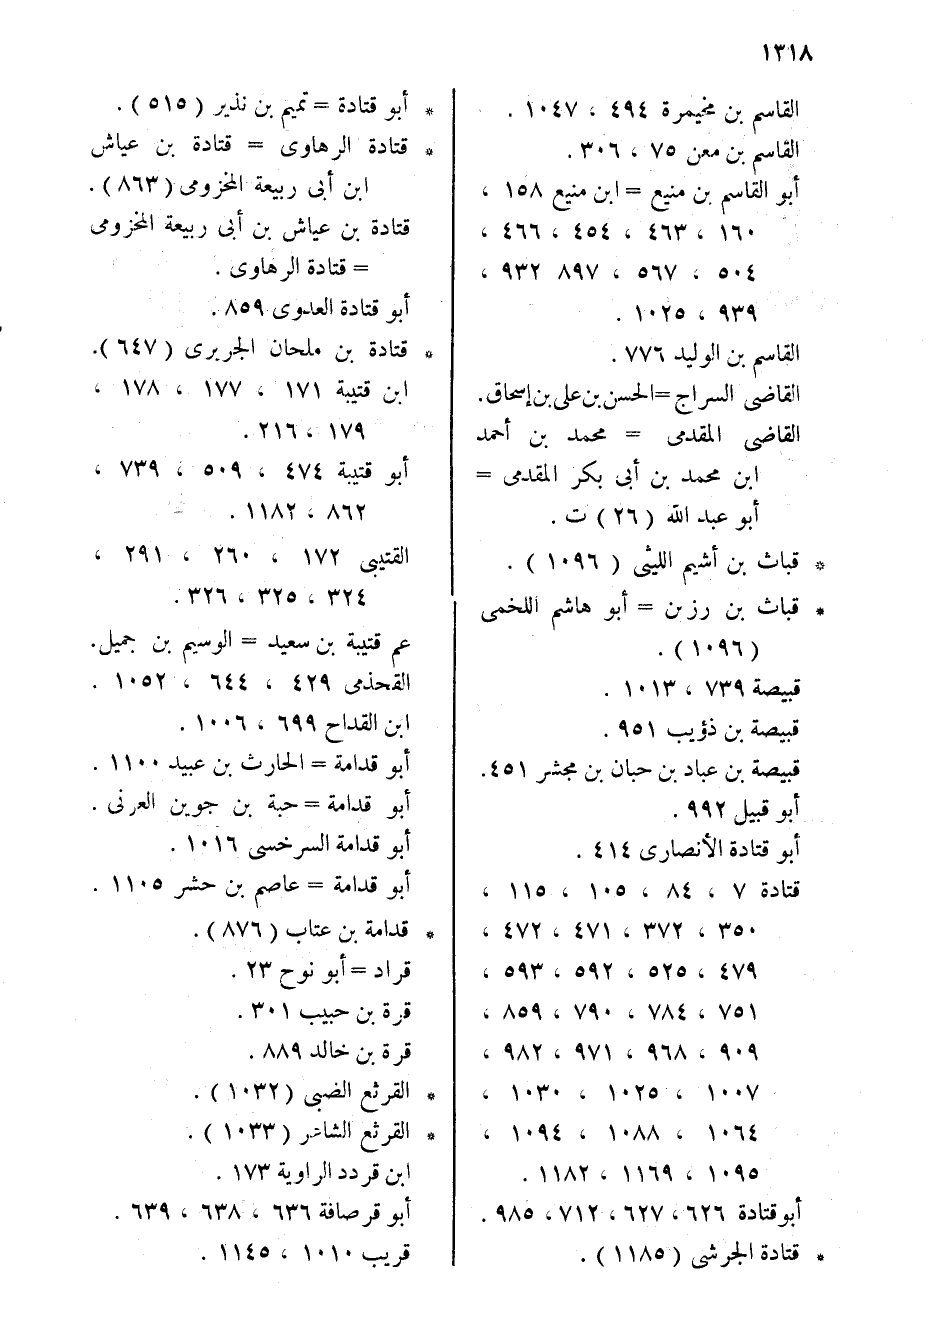 ١٣١٨
القاسم بن مخيمرة ٤٩٤ ، ١٠٤٧ .
القاسم بن معن ٧٥ ، ٣٠٦ .
أبو القاسم بن منيع = ابن منيع ١٥٨ ،
١٦٠ ، ٤٦٣ ، ٤٥٤ ، ٤٦٦ ،
٥٠٤ ، ٥٦٧ ، ٨٩٧ ٩٣٢ ،
٩٣٩ ، ١٠٢٥ .
القاسم بن الوليد ٧٧٦ .
القاضى السراج = الحسن بن على بن إسحاق .
القاضى المقدمى = محمد بن أحمد
ابن محمد بن أبى بكر المقدمى =
أبو عبد الله ( ٢٦ ) ت .
* قباث بن أشيم الليثى ( ١٠٩٦ ) .
* قباث بن رزين = أبو هاشم اللخمى
( ١٠٩٦ ) .
قبيصة ٧٣٩ ، ١٠١٣ .
قبيصة بن ذؤيب ٩٥١ .
قبيصة بن عباد بن حبان بن مجشر ٤٥١ .
أبو قبيل ٩٩٢ .
أبو قتادة الأنصارى ٤١٤ .
قتادة ٧ ، ٨٤ ، ١٠٥ ، ١١٥ ،
٣٥٠ ، ٣٧٢ ، ٤٧١ ، ٤٧٢ ،
٤٧٩ ، ٥٢٥ ، ٥٩٢ ، ٥٩٣ ،
٧٥١ ، ٧٨٤ ، ٧٩٠ ، ٨٥٩ ،
٩٠٩ ، ٩٦٨ ، ٩٧١ ، ٩٨٢ ،
١٠٠٧ ، ١٠٢٥ ، ١٠٣٠ ،
١٠٦٤ ، ١٠٨٨ ، ١٠٩٤ ،
١٠٩٥ ، ١١٦٩ ، ١١٨٢ .
أبو قتادة ٦٢٦ ، ٦٢٧ ، ٧١٢ ، ٩٨٥ .
* قتادة الجرشى ( ١١٨٥ ) .
* أبو قتادة = تميم بن نذير ( ٥١٥ ) .
* قتادة الرهاوى = قتادة بن عياش
ابن أبى ربيعة المخزومى ( ٨٦٣ ) .
قتادة بن عياش بن أبى ربيعة المخزومى
= قتادة الرهاوى .
أبو قتادة العدوى ٨٥٩ .
* قتادة بن ملحان الجريرى ( ٦٤٧ ) .
ابن قتيبة ١٧١ ، ١٧٧ ، ١٧٨ ،
١٧٩ ، ٢١٦ .
أبو قتيبة ٤٧٤ ، ٥٠٩ ، ٧٣٩ ،
٨٦٢ ، ١١٨٢ .
القتيبى ١٧٢ ، ٢٦٠ ، ٢٩١ ،
٣٢٤ ، ٣٢٥ ، ٣٢٦ .
عم قتيبة بن سعيد = الوسيم بن جميل .
القحذمى ٤٢٩ ، ٦٤٤ ، ١٠٥٢ .
ابن القداح ٦٩٩ ، ١٠٠٦ .
أبو قدامة = الحارث بن عبيد ١١٠٠ .
أبو قدامة = حبة بن جوين العرنى .
أبو قدامة السرخسى ١٠١٦ .
أبو قدامة = عاصم بن حشر ١١٠٥ .
* قدامة بن عتاب ( ٨٧٦ ) .
قراد = أبو نوح ٢٣ .
قرة بن حبيب ٣٠١ .
قرة بن خالد ٨٨٩ .
* القرثع الضبى ( ١٠٣٢ ) .
* القرثع الشاعر ( ١٠٣٣ ) .
ابن قردد الراوية ١٧٣ .
أبو قرصافة ٦٣٦ ، ٦٣٨ ، ٦٣٩ .
قريب ١٠١٠ ، ١١٤٥ .